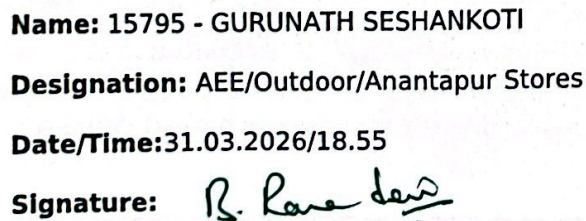 Name: 15795 - GURUNATH SESHANKOTI
Designation: AEE/Outdoor/Anantapur Stores
Date/Time:31.03.2026/18.55
Signature: B.